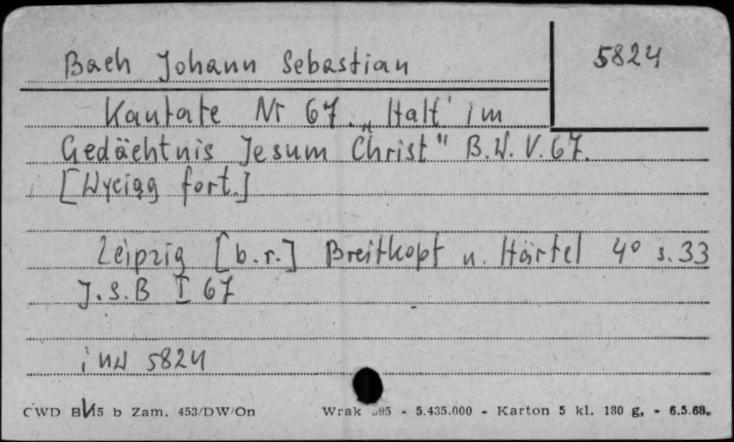 Bach Johann Sebastian
5824
Kantate Nr 67. „Halt' im
Gedächtnis Jesum Christ" B.W.V.67.
[Wyciąg fort.]
Leipzig [b.r.] Breitkopf u. Härtel 4° s.33
J.S.B I 67
inw 5824
CWD B 15 b Zam. 453/DW/On Wrak 95 - 5.435.000 - Karton 5 kl. 180 g, - 6.5.68.